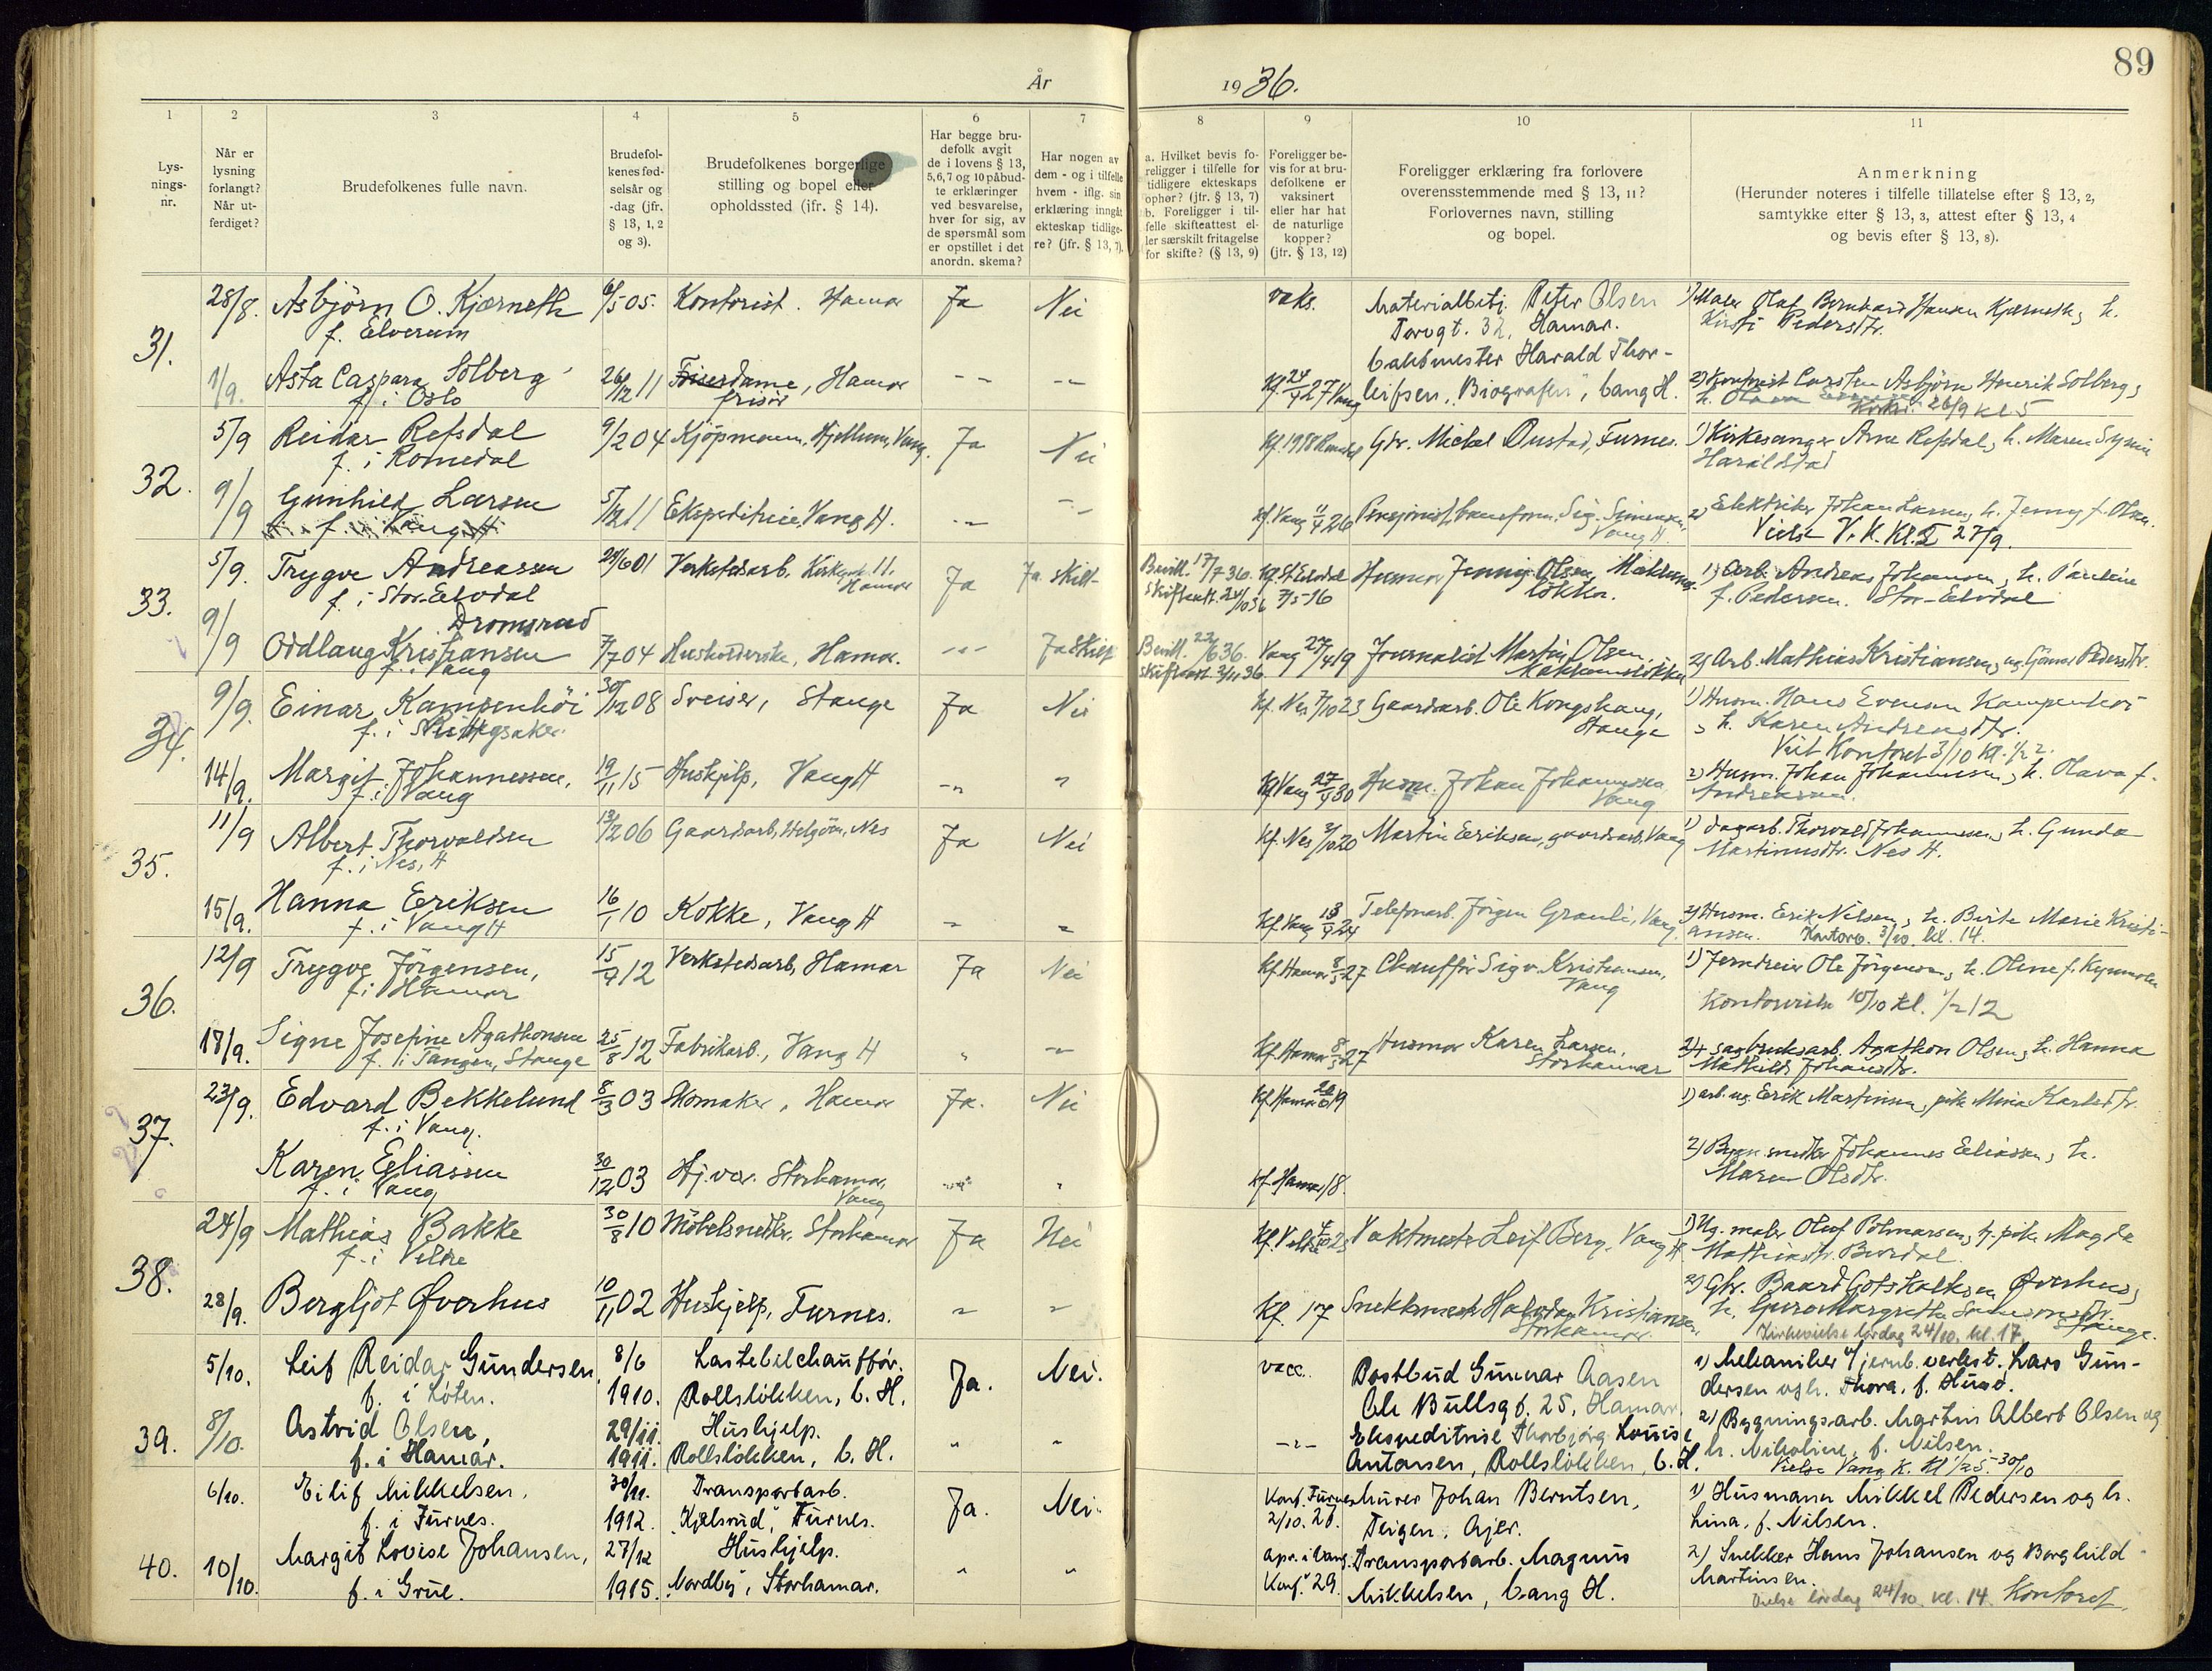 89
År 1936.
1 2 3 4 5 6 7 8 9 10 11
Lysningsnr.
Når er lysning forlangt? Når utferdiget?
Brudefolkenes fulle navn.
Brudefolkenes fødselsår og -dag (jfr. § 13, 1, 2 og 3).
Brudefolkenes borgerlige stilling og bopel eller opholdssted (jfr. § 14).
Har begge brudefolk avgit de i lovens § 13, 5, 6, 7 og 10 påbudte erklæringer ved besvarelse, hver for sig, av de spørsmål som er opstillet i det anordn. skema?
Har nogen av dem - og i tilfelle hvem - iflg. sin erklæring inngåt ekteskap tidligere? (jfr. § 13, 7).
a. Hvilket bevis foreligger i tilfelle for tidligere ekteskaps ophør? (jfr. § 13, 7) b. Foreligger i tilfelle skifteattest eller særskilt fritagelse for skifte? (§ 13, 9)
Foreligger bevis for at brudefolkene er vaksinert eller har hat de naturlige kopper? (jfr. § 13, 12)
Foreligger erklæring fra forlovere overensstemmende med § 13, 11? Forlovernes navn, stilling og bopel.
Anmerkning (Herunder noteres i tilfelle tillatelse efter § 13, 2, samtykke efter § 13, 3, attest efter § 13, 4 og bevis efter § 13, 8).
31.
28/8. Asbjörn O. Kjærneth 6/5 05. Kontorist. Hamar Ja Nei vaks. Materialbetj. Peter Olsen
f. Elverum Torvgt. 32, Hamar. Kirsti Pedersdtr.
Harald Thor-
1/9. Asta Caspara Solberg 26/12 11 Friserdame, Hamar -"- -"- Kf. 24/4 27 Vang leifsen, "Biografen", Vang H. 2) Kontorist Carsten Asbjörn Henrik Solberg,
f. i Oslo frisör 26/9 kl 5
32.
5/9 Reidar Refsdal 9/2 04 Kjöpmann, Hjellum, Vang. Ja Nei Gbr. Michal Dustad, Furnes. 1) Kirkesanger Arne Refsdal, h. Maren
f. i Romedal Haraldstad
9/9 Gunhild Larsen 5/12 11 Ekspeditrice, Vang H. -"- -"- Kf. Vang 11/4 26 Sig. Simensen, 2) Elektriker Johan Larsen, h. Jenny f. Olsen.
f. i Vang H. Vang H. Vielse V. K. Kl. 5 27/9.
33.
5/9. Trygve Andreassen 29/6 01 Verkstedsarb. Kirkegt. 11. Hamar Ja Ja skilt Bevill. 17/7 36. Husmor Jenny Olsen, 1) Arb. Andreas Johansen, h. Pauline
f. i Stor-Elvdal Skifteatt. 7/5-16 lökka. f. Pedersen. Stor-Elvdal
Dromsrud
9/9 Oddlaug Kristiansen 7/7 04 Husholderske, Hamar. -"- Ja skilt Bevill. 22/6 36. Vang 27/4 19 Journalist Martin Olsen, 2) Arb. Mathias Kristiansen,
f. i Vang
34.
9/9. Einar Kampenhöi 30/12 08 Sveiser, Stange Ja Nei Kf. Nes 7/10 23 Gaardsarb. Ole Kongshaug, 1) Husm. Hans Evensen Kampenhöi
f. i Ringsaker Stange , h. Karen Andreasdtr.
Kontoret 3/10 kl. 1/2 2.
14/9. Margit Johannessen, 19/11 15 Huskjelp, Vang H -"- " Kf Vang 27/4 30 Husm. Johan Johannessen, 2) Husm. Johan Johannessen, h. Olava f.
f. i Vang Vang Andreassen.
35.
11/9 Albert Thorvaldsen 13/2 06 Gaardsarb, Helgöen, Nes Ja Nei Kf. Nes 3/10 20 Martin Eriksen, gaardsarb. Vang 1) dagarb. Thorvald Johannessen, h. Gunda
f. i Nes, H Martinusdtr. Nes H.
15/9. Hanna Eriksen 16/1 10 Kokke, Vang H " " Kf Vang 13/4 24 Telefonarb. Jörgen Granli, Vang. 2) Husm. Erik Nilsen, h. Birte Marie Kristi-
f. i Vang H ansen. Kontoro. 3/10. kl. 14.
36.
12/9 Trygve Jörgensen, 15/4 12 Verkstedsarb, Hamar Ja Nei Kf Hamar 8/5 27 Chaufför Sigv. Kristiansen, 1) Jerndreier Ole Jörgensen, h. Oline f.
f. i Hamar Vang 10/10 kl. 1/2 12
18/9. Signe Josefine Agathonsen 25/8 12 Fabrikarb., Vang H " -"- Kf. Hamar 8/5 27 Husmor Karen Larsen, 2) + sagbruksarb. Agathon Olsen, h. Hanna
f. i Tangen, Stange Storhamar Mathilde Johansdtr.
37.
23/9. Edvard Bekkelund 8/3 03 Skomaker, Hamar Ja. Nei 1) arb. ug. Erik Martinsen, pike Mina Karlsdtr.
f. i Vang.
Karen Eliassen 30/12 03 Hj.vær. Storhamar, Vang " Kf. Hamar 18. 2) Bygn. snekker Johannes Eliassen, h.
f. i Vang Maren Olsdtr.
38.
24/9 Mathias Bakke 30/8 10 Möbelsnekker. Storhamar Ja Nei Vaktmester Leif Berg, Vang H. 1) Ug. maler Olaf pike Magda
f. i Veldre
28/9. Bergljot Øverhus 10/11 02 Huskjelp, Furnes. " " Kf. 17 Kristiansen, 2) Gbr. Baard Gotskalksen Øverhus,
Storhamar. h. Guro Margrethe
Kirkevielse lørdag 24/10. kl. 17.
39.
5/10. Leif Reidar Gundersen, 8/6 1910. Lastebilchaufför. Rollslökken, V. H. Ja. Nei. vacc. Postbud Gunnar Aasen 1) Mekaniker v/ jernb. verkst. Lars Gun-
f. i Löten. Chr Bullsgt. 25, Hamar. dersen og h. Thora, f. Huse.
8/10. Astrid Olsen, 29/11. 1911. Hushjelp. Rollslökken, V. H. " " -"- Ekspeditrise Thorbjørg Louise 2) Bygningsarb. Martin Albert Olsen og
f. i Hamar. Antonsen, Rollslökken, V. H. h. Nikoline, f. Nilsen.
Vielse Vang K. Kl 1/2 5. - 30/10
40.
6/10. Eilif Mikkelsen. 30/11. 1912. Transportarb. "Kjelsrud", Furnes. Ja. Nei. Konf. Furnes 2/10. 27. Murer Johan Berntsen, 1) Husmann Mikkel Pedersen og h.
f. i Furnes. Teigen, Lina, f. Nilsen.
10/10. Margit Lovise Johansen, 27/12 1915. Hushjelp. "Nordby", Storhamar. " " apr. i Vang. Konf. 29. Transportarb. Magnus 2) Snekker Hans Johansen og Borghild
f. i Grue. Mikkelsen, Vang H. Martinsen.
Vielse lördag 24/10. kl. 14. Kontoret.